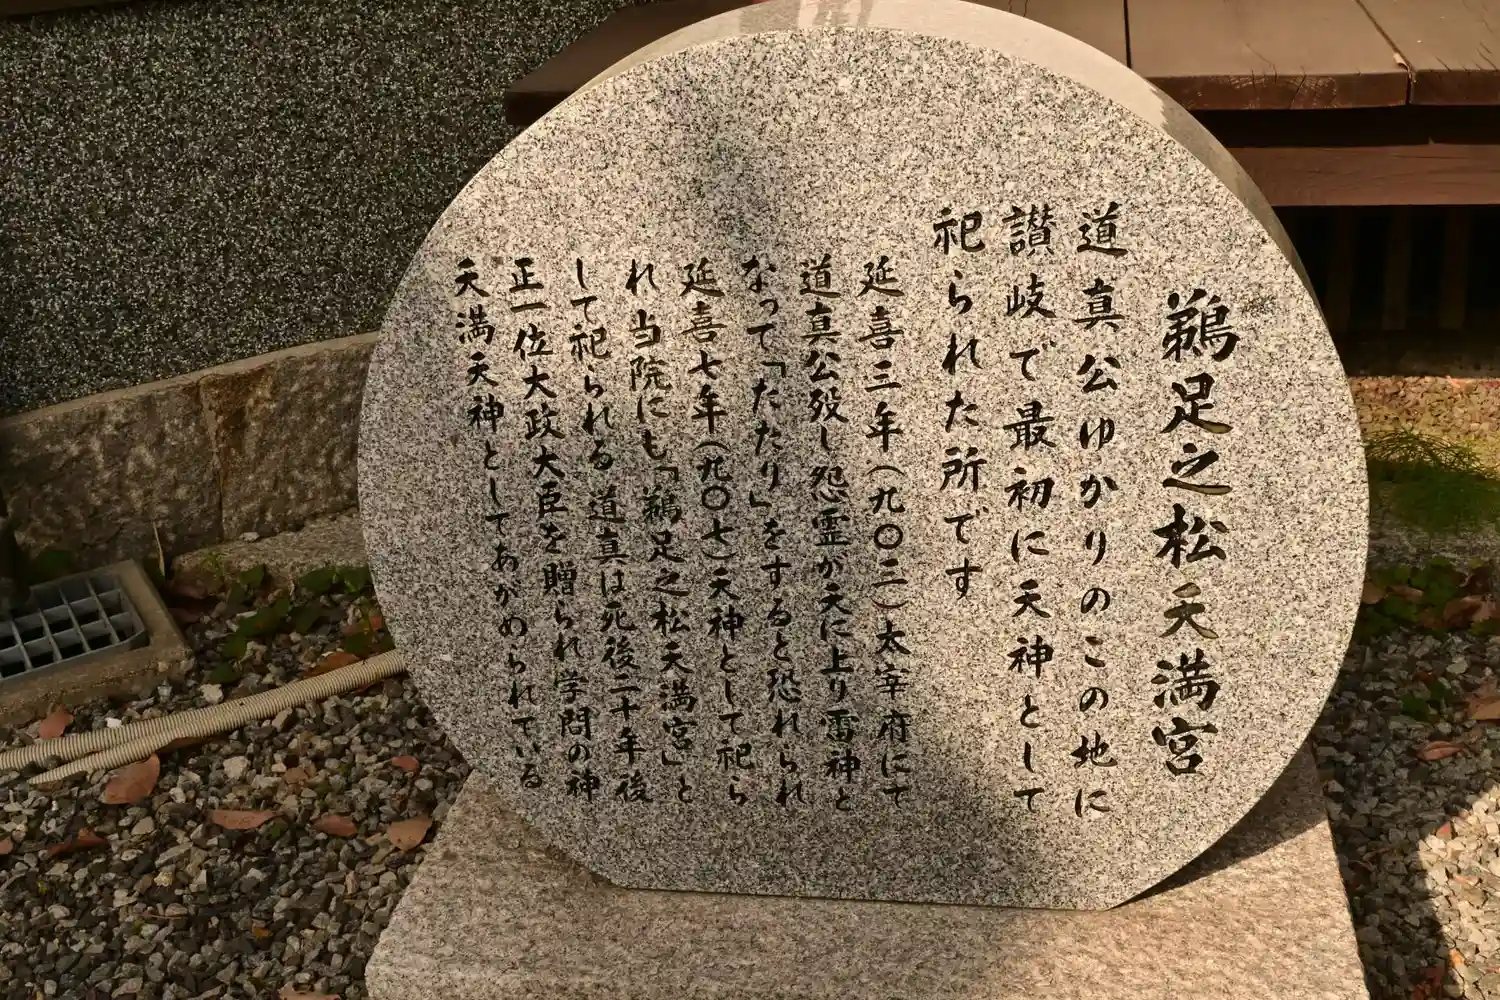 鵜足之松天満宮
道真公ゆかりのこの地に
讃岐で最初に天神として
祀られた所です
延喜三年（九〇三）太宰府にて
道真公歿し怨霊が天に上り雷神と
なって「たたり」をすると恐れられ
延喜七年（九〇七）天神として祀ら
れ当院にも「鵜足之松天満宮」と
して祀られる道真は死後二十年後
正一位大政大臣を贈られ学問の神
天満天神としてあがめられている